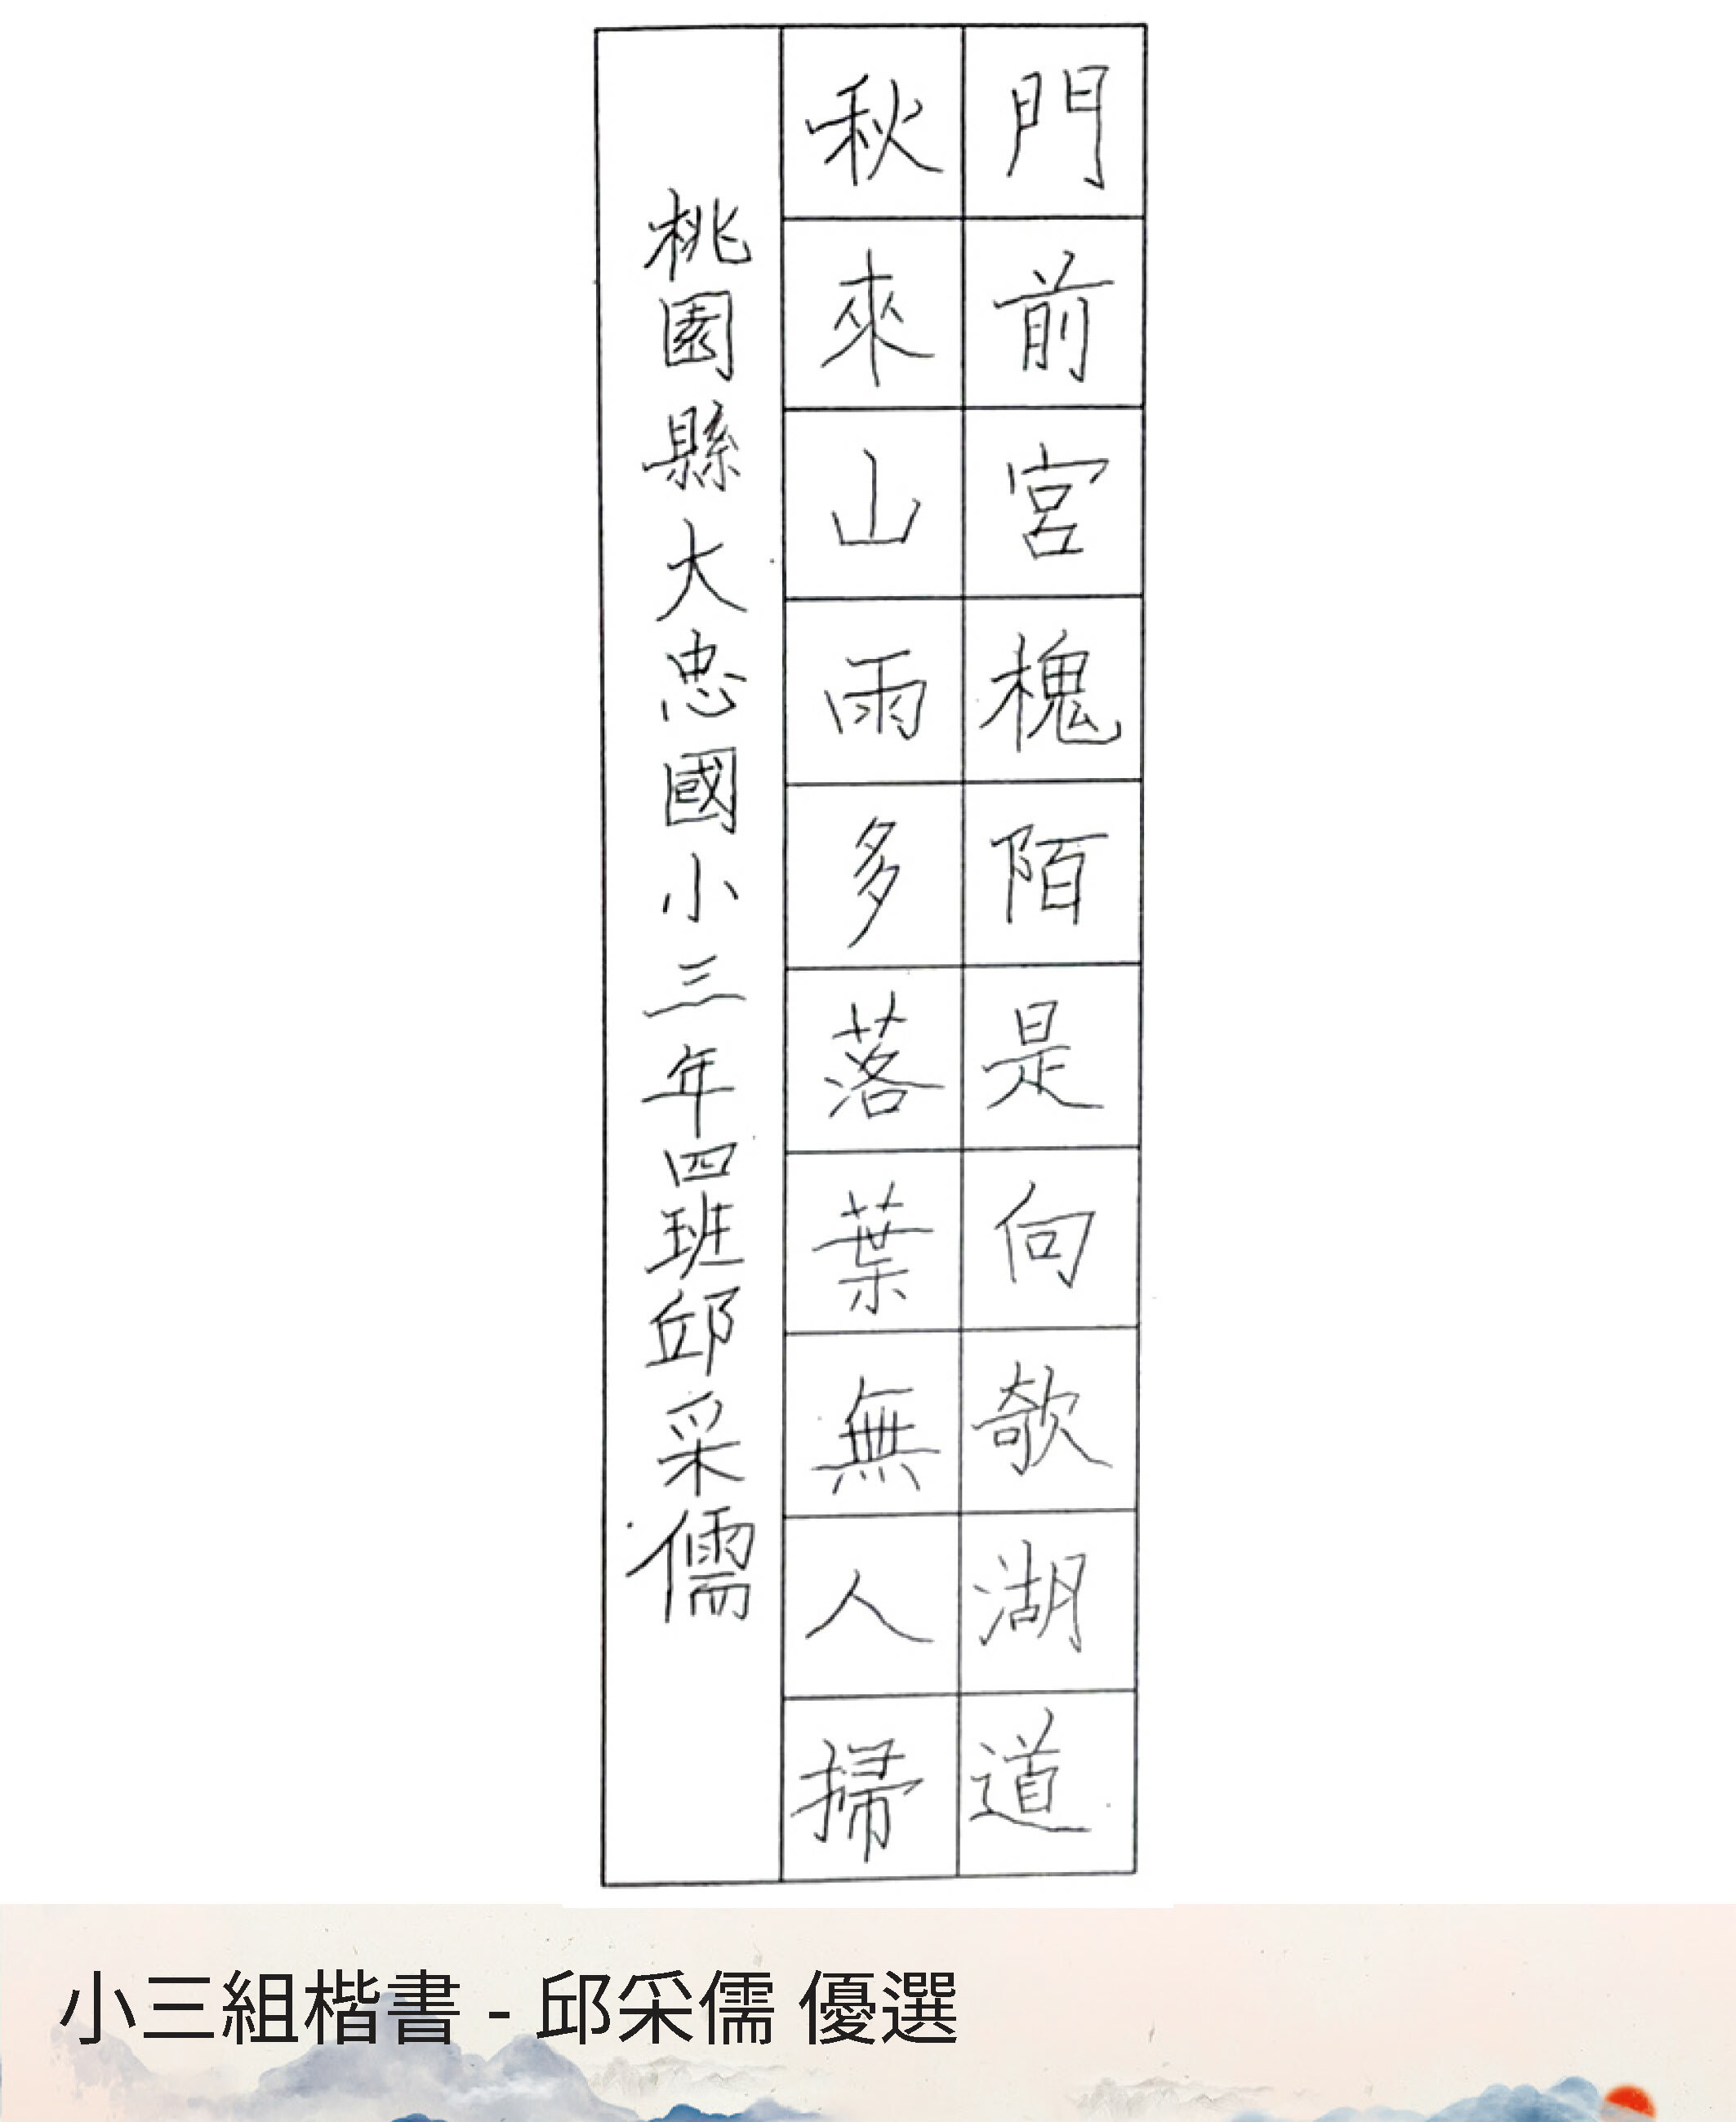 門前宮槐陌是向欹湖道
秋來山雨多落葉無人掃
桃園縣大忠國小三年四班邱采儒
小三組楷書 - 邱采儒 優選